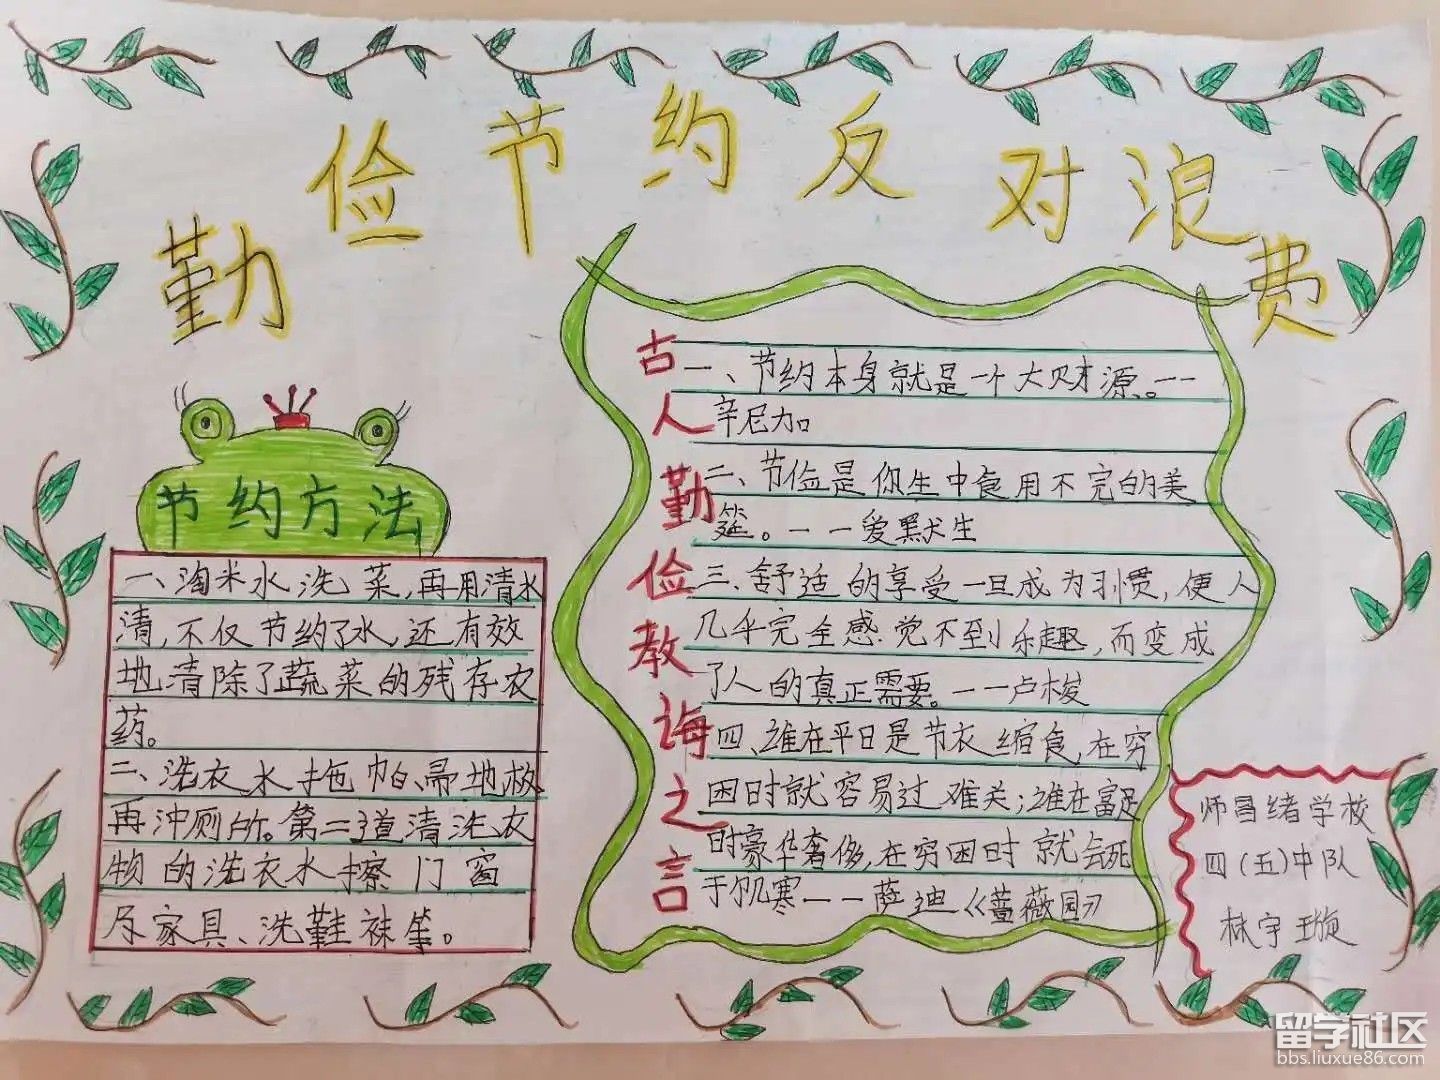 勤俭节约反对浪费
节约方法
一、淘米水洗菜,再用清水
清,不仅节约了水,还有效
地清除了蔬菜的残存农
药。
二、洗衣水拖帕、帚地板
再冲厕所。第二道清洗衣
物的洗衣水擦门窗
及家具、洗鞋袜等。
古人勤俭教诲之言
一、节约本身就是一个大财源。一一
辛尼加
二、节俭是你生中食用不完的美
筵。一一爱默生
三、舒适的享受一旦成为习惯,便人
几乎完全感觉不到乐趣,而变成
了人的真正需要。一一卢梭
四、谁在平日是节衣缩食,在穷
困时就容易过难关;谁在富足
时豪华奢侈,在穷困时就会死
于饥寒一一萨迪《蔷薇园》
师昌绪学校
四(五)中队
林宇璇
留学社区
bbs.liuxue86.com